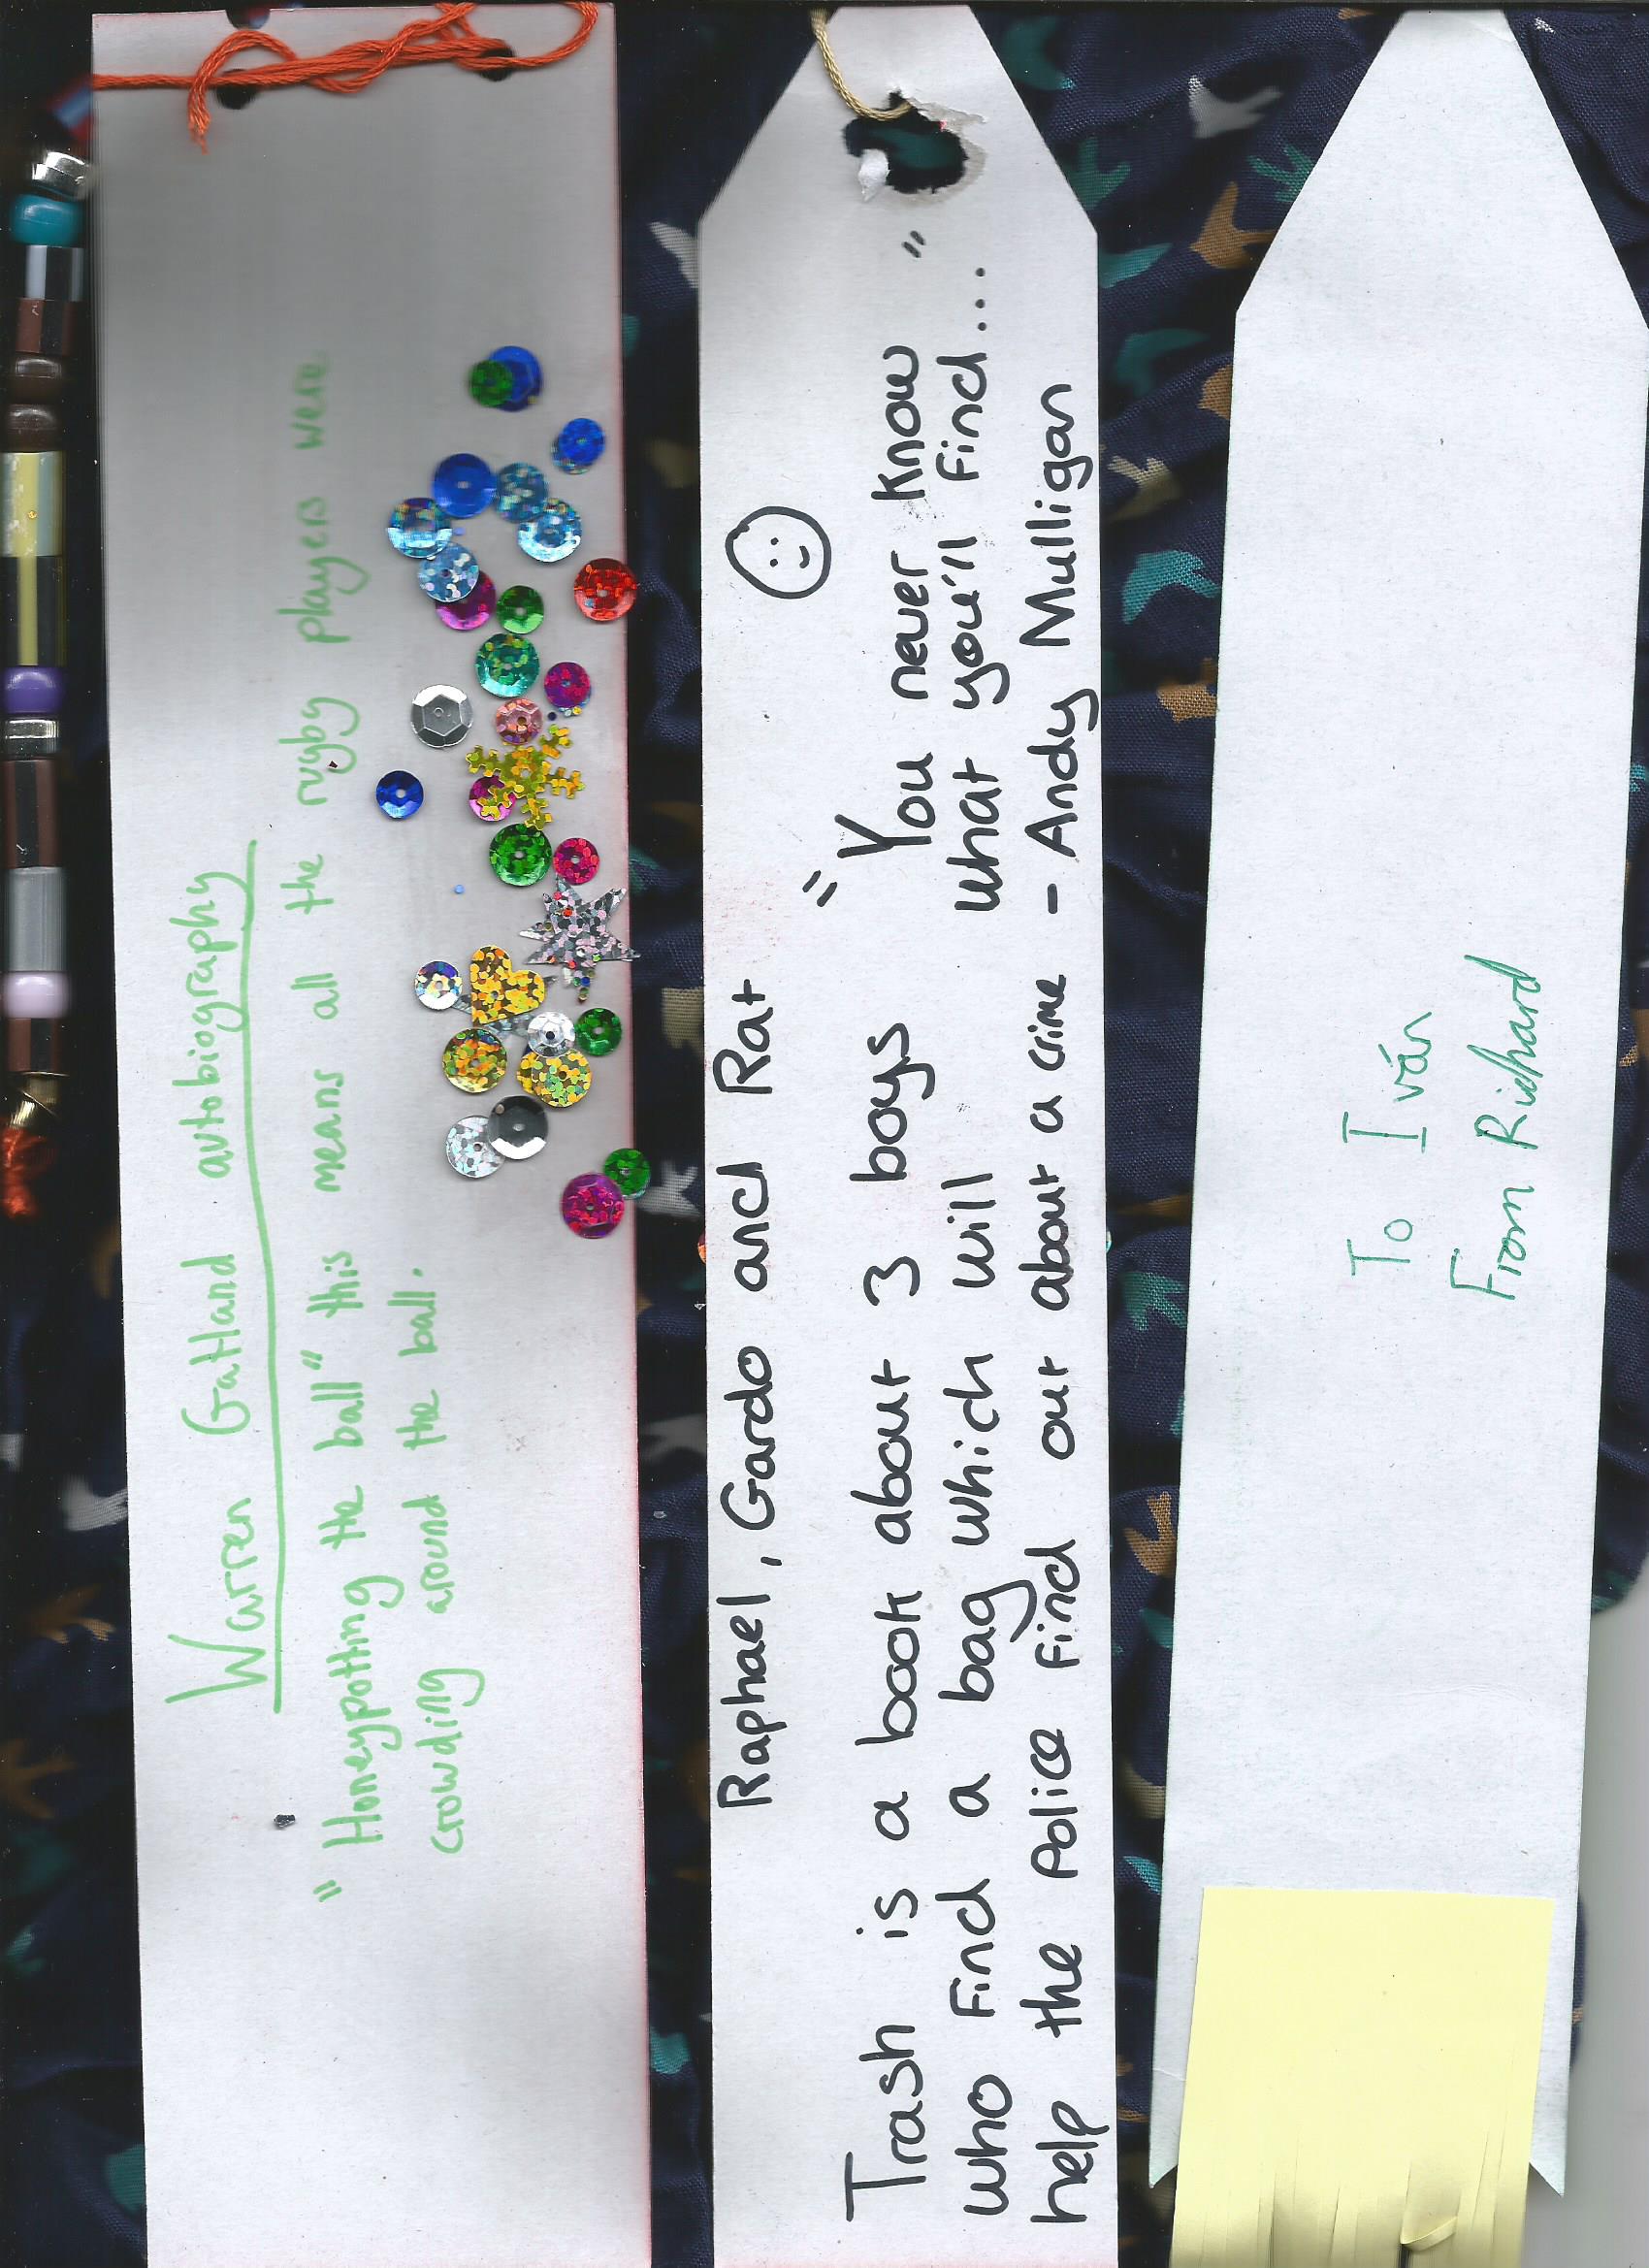 Warren Gatland autobiography
"Honeypotting the ball" this means all the rugby players were
crowding around the ball.
Raphael, Gardo and Rat
Trash is a book about 3 boys
who find a bag which will
help the police find out about a crime
"You never know "
what you'll find...
- Andy Mulligan
To Iván
From Richard